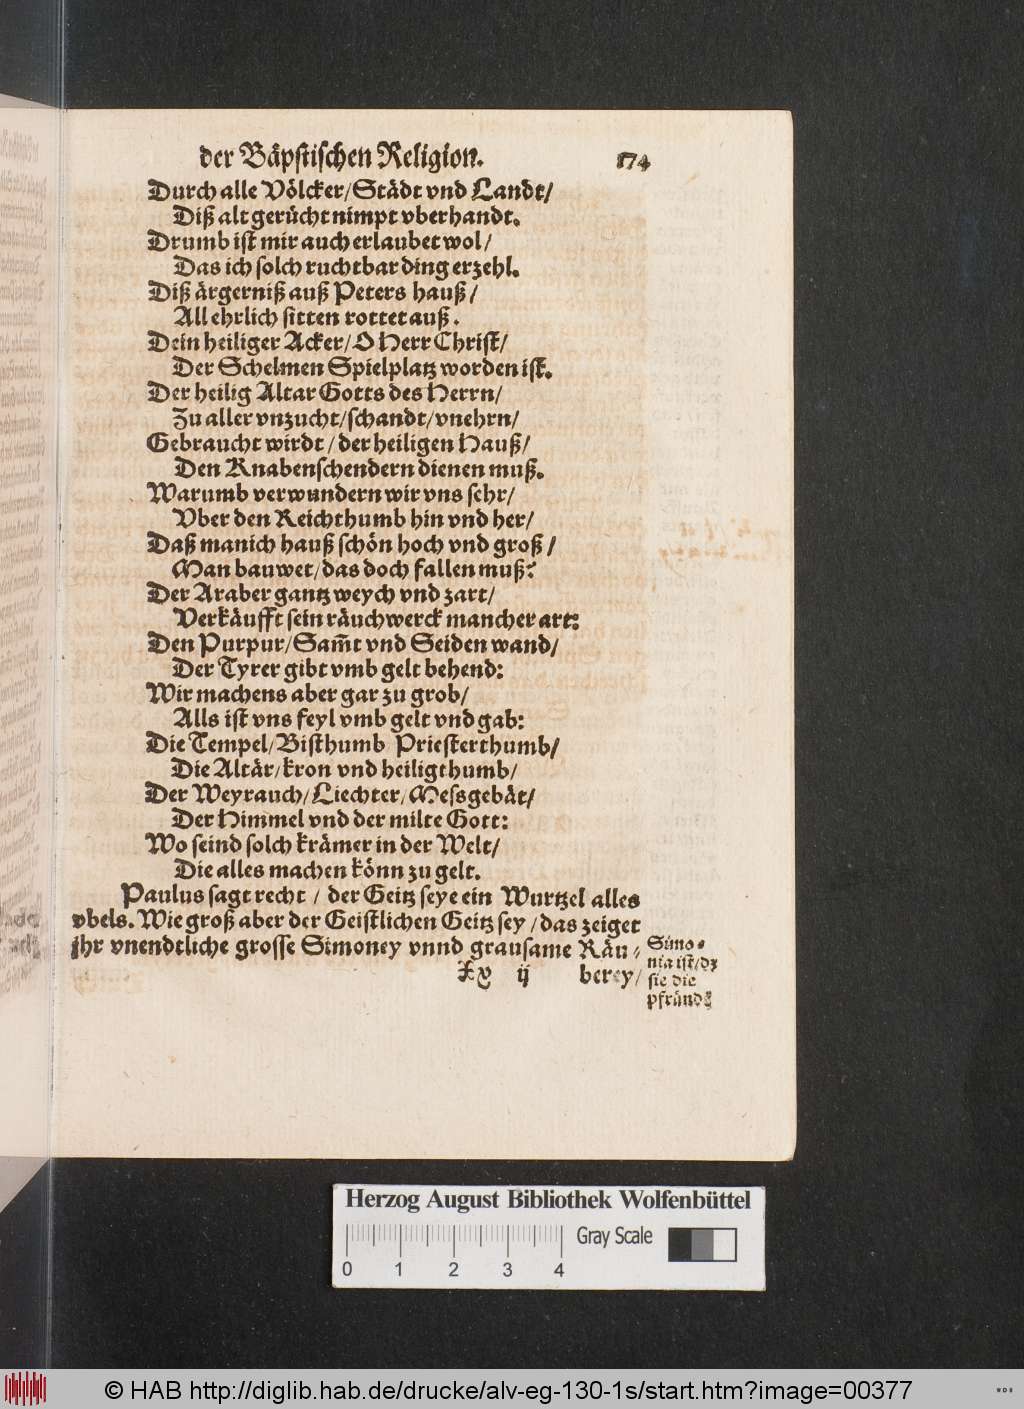 der Bäpstischen Religion. 174
Durch alle Völcker/Städt vnd Landt/
Diß alt gerücht nimpt vberhandt.
Drumb ist mir auch erlaubet wol/
Das ich solch ruchtbar ding erzehl.
Diß ärgerniß auß Peters hauß/
All ehrlich sitten rottet auß.
Dein heiliger Acker/O Herr Christ/
Der Schelmen Spielplatz worden ist.
Der heilig Altar Gotts des Herrn/
Zu aller vnzucht/schandt/vnehrn/
Gebraucht wirdt/der heiligen Hauß/
Den Knabenschendern dienen muß.
Warumb verwundern wir vns sehr/
Vber den Reichthumb hin vnd her/
Daß manich hauß schön hoch vnd groß/
Man bauwet/das doch fallen muß?
Der Araber gantz weych vnd zart/
Verkäufft sein räuchwerck mancher art:
Den Purpur/Sam̄t vnd Seiden wand/
Der Tyrer gibt vmb gelt behend:
Wir machens aber gar zu grob/
Alls ist vns feyl vmb gelt vnd gab:
Die Tempel/Bisthumb Priesterthumb/
Die Altär/kron vnd heiligthumb/
Der Weyrauch/Liechter/Messgebät/
Der Himmel vnd der milte Gott:
Wo seind solch krämer in der Welt/
Die alles machen könn zu gelt.
Paulus sagt recht / der Geitz seye ein Wurtzel alles
vbels. Wie groß aber der Geistlichen Geitz sey/das zeiget
jhr vnendtliche grosse Simoney vnnd grausame Räu-
Xx ij berey/
Simo-
nia ist/dz
sie die
pfründē
Herzog August Bibliothek Wolfenbüttel
Gray Scale
0 1 2 3 4
© HAB http://diglib.hab.de/drucke/alv-eg-130-1s/start.htm?image=00377